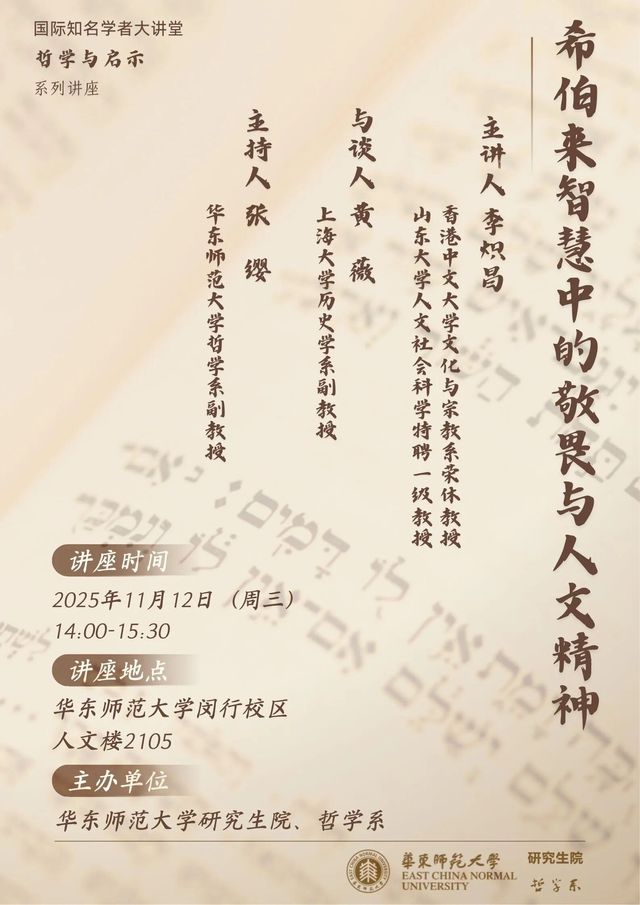 国际知名学者大讲堂
哲学与启示
系列讲座
希伯来智慧中的敬畏与人文精神
主讲人 李炽昌
香港中文大学文化与宗教系荣休教授
山东大学人文社会科学特聘一级教授
与谈人 黄 薇
上海大学历史学系副教授
主持人 张 缨
华东师范大学哲学系副教授
讲座时间
2025年11月12日（周三）
14:00-15:30
讲座地点
华东师范大学闵行校区
人文楼2105
主办单位
华东师范大学研究生院、哲学系
華東師範大學
EAST CHINA NORMAL
UNIVERSITY
研究生院
哲学系